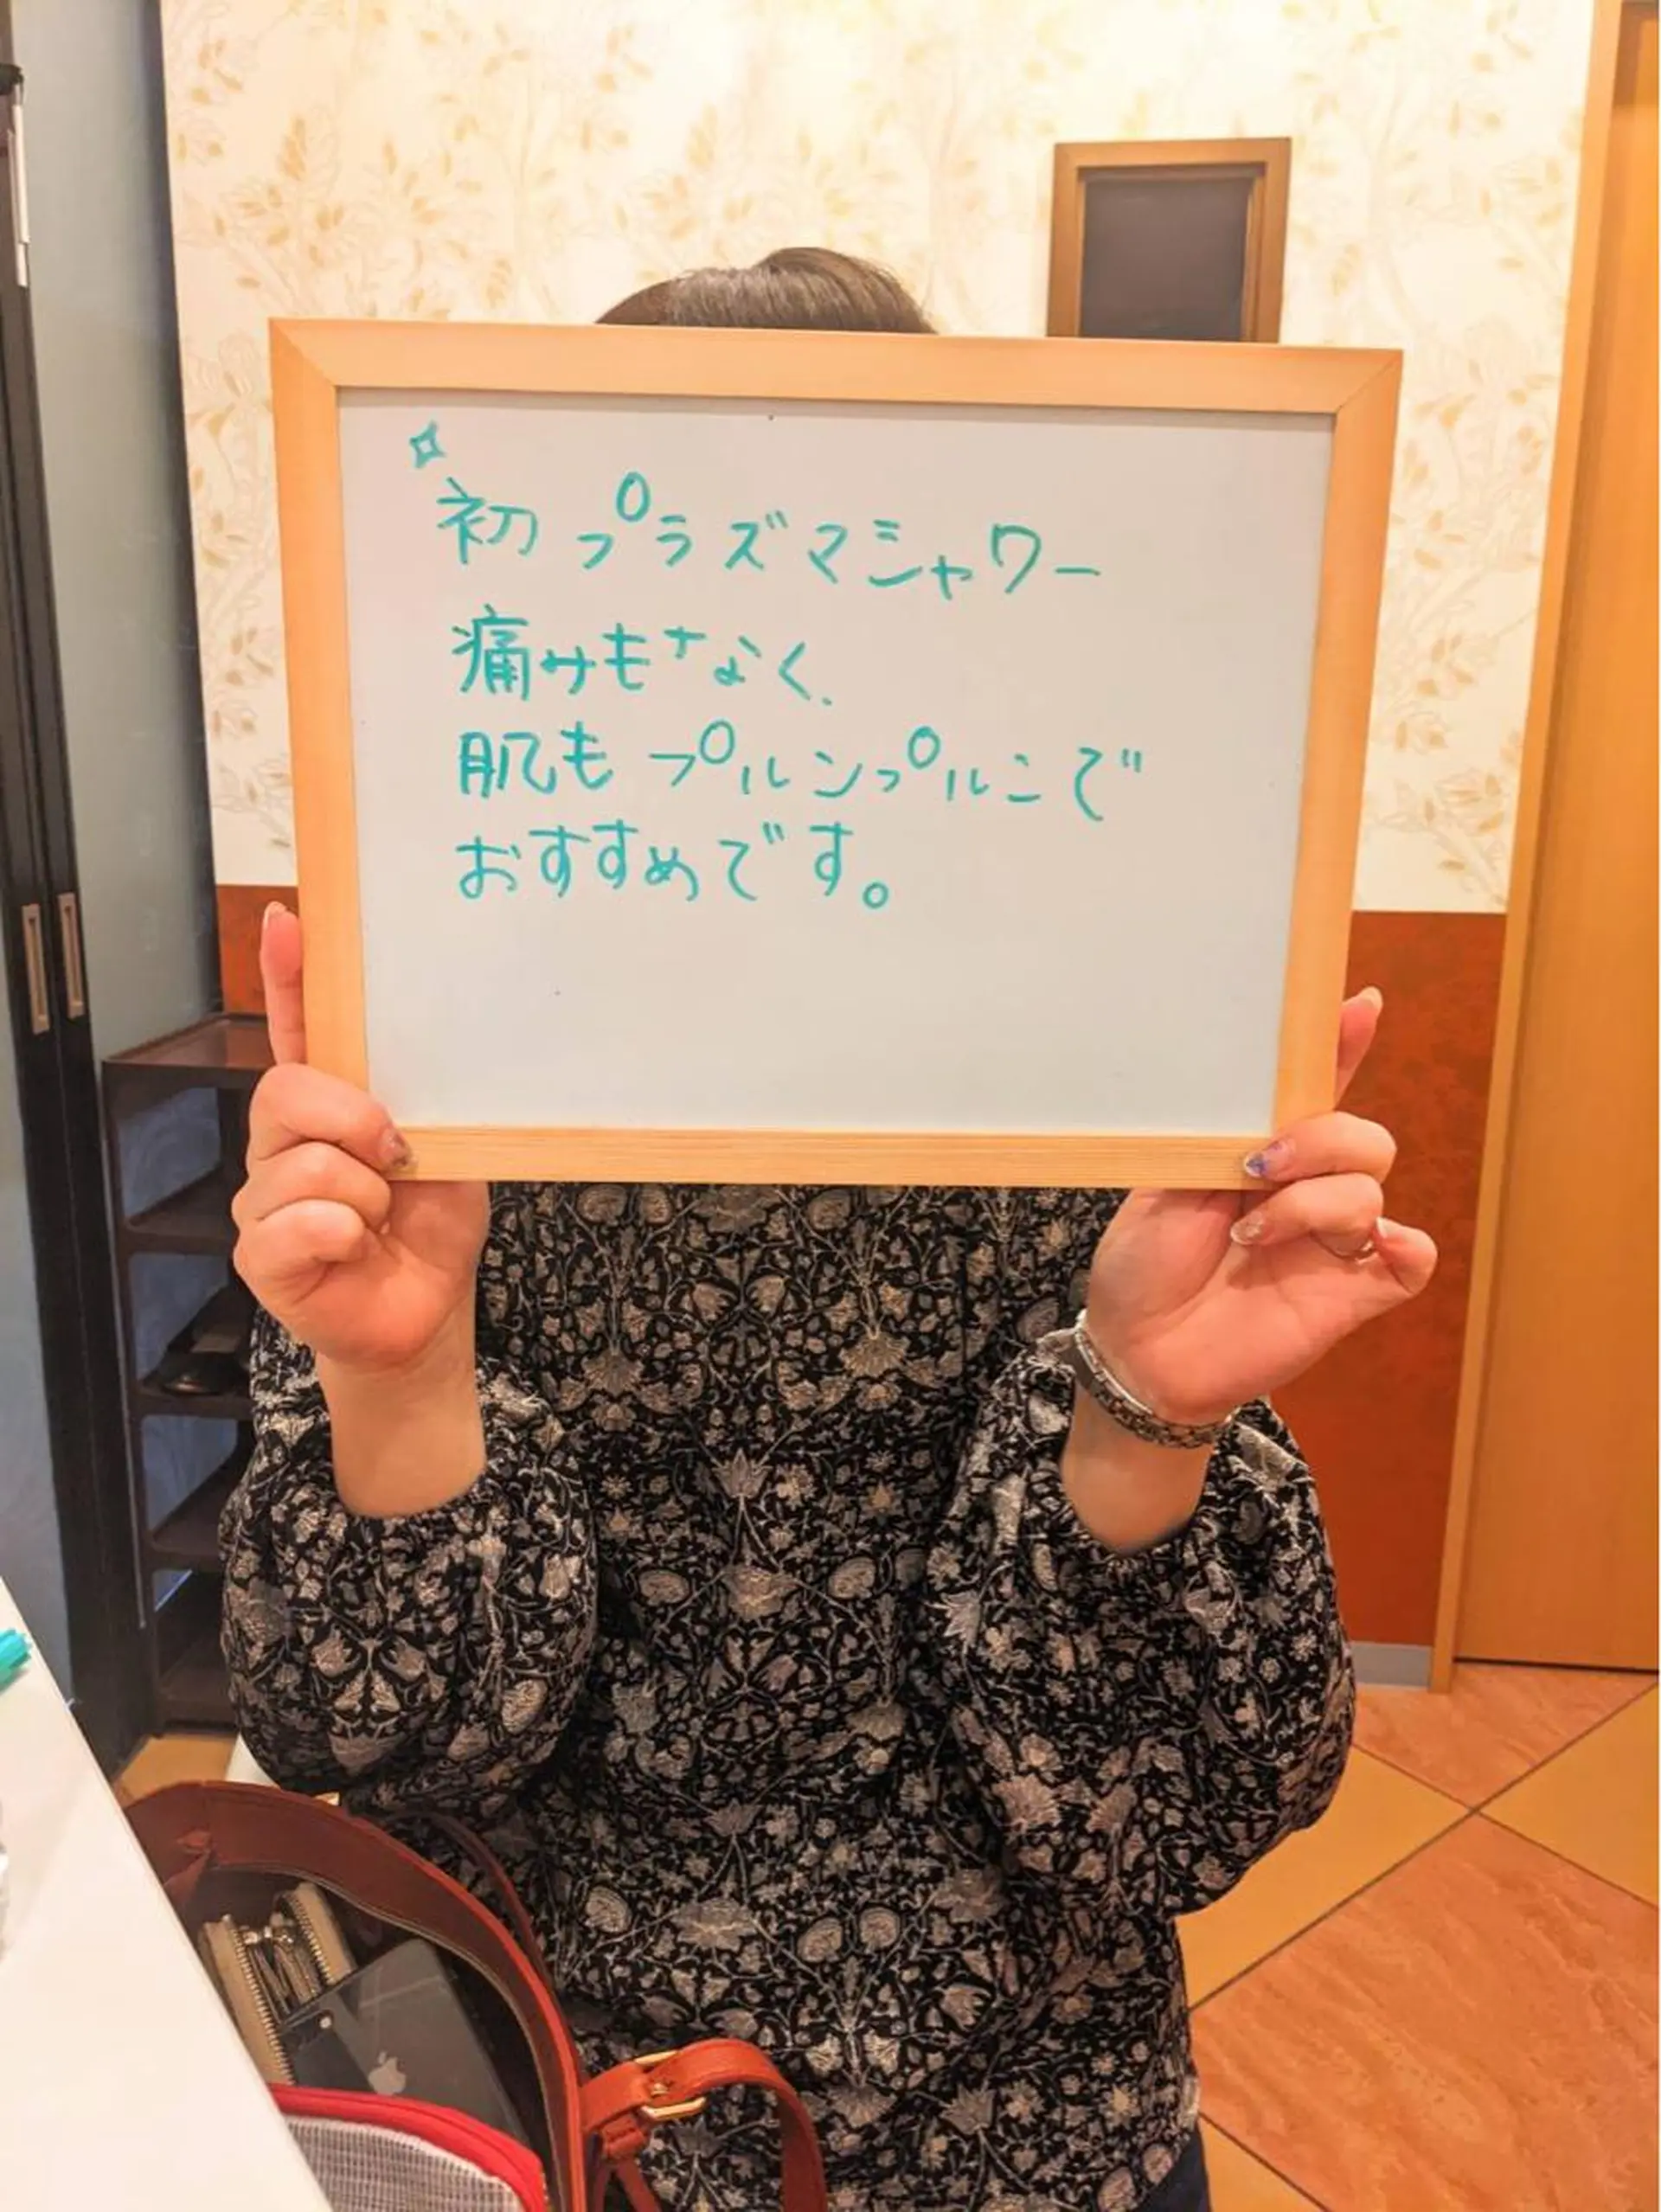 初プラズマシャワー
痛みもなく、
肌もプルンプルンで
おすすめです。